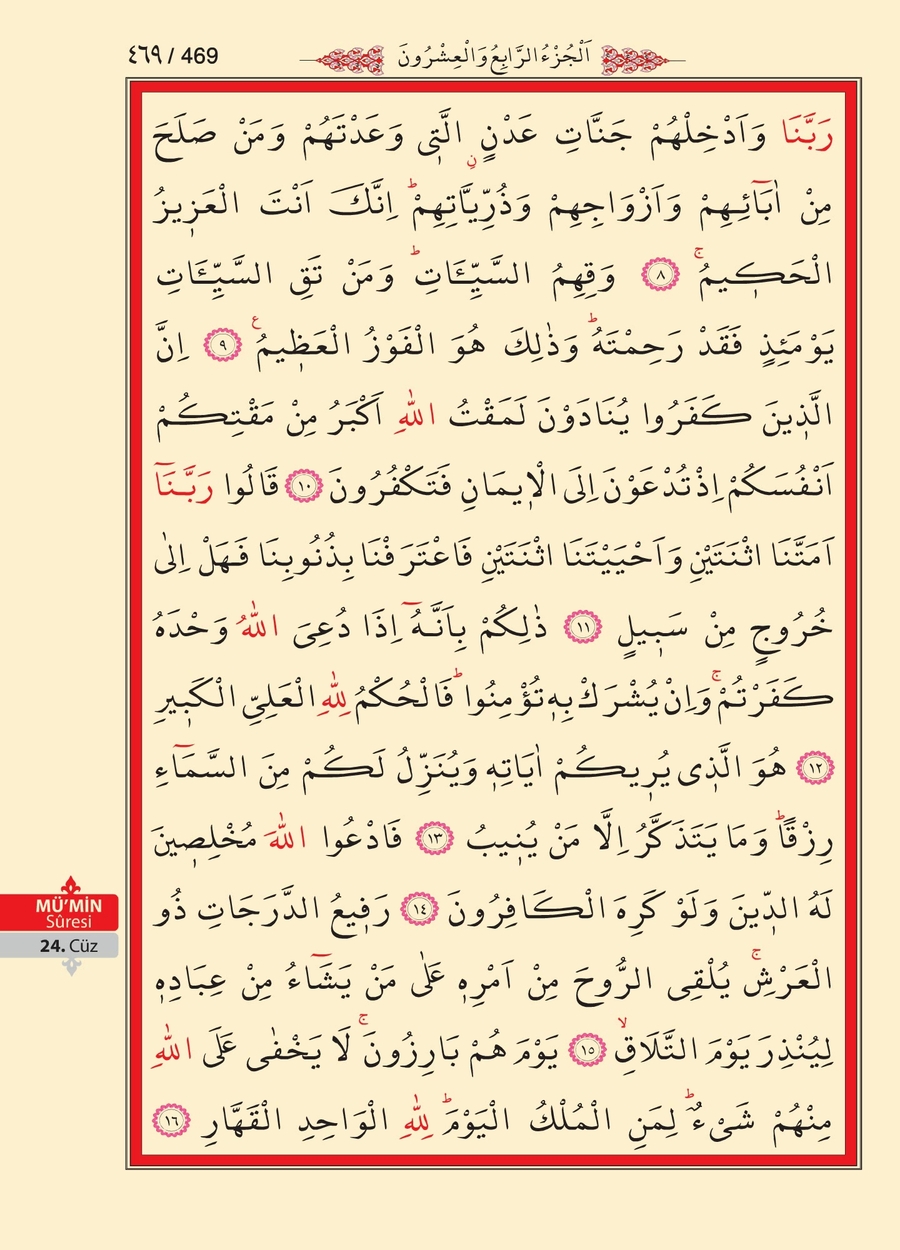 ٤٦٩ / 469
اَلْجُزْءُ الرَّابِعُ وَالْعِشْرُونَ
رَبَّنَا وَاَدْخِلْهُمْ جَنَّاتِ عَدْنٍۨ الَّتٖى وَعَدْتَهُمْ وَمَنْ صَلَحَ
مِنْ اٰبَٓائِهِمْ وَاَزْوَاجِهِمْ وَذُرِّيَّاتِهِمْؕ اِنَّكَ اَنْتَ الْعَزٖيزُ
الْحَكٖيمُۚ ﴿٨﴾ وَقِهِمُ السَّيِّـَٔاتِؕ وَمَنْ تَقِ السَّيِّـَٔاتِ
يَوْمَئِذٍ فَقَدْ رَحِمْتَهُؕ وَذٰلِكَ هُوَ الْفَوْزُ الْعَظٖيمُࣖ ﴿٩﴾ اِنَّ
الَّذٖينَ كَفَرُوا يُنَادَوْنَ لَمَقْتُ اللّٰهِ اَكْبَرُ مِنْ مَقْتِكُمْ
اَنْفُسَكُمْ اِذْ تُدْعَوْنَ اِلَى الْاٖيمَانِ فَتَكْفُرُونَ ﴿١٠﴾ قَالُوا رَبَّنَٓا
اَمَتَّنَا اثْنَتَيْنِ وَاَحْيَيْتَنَا اثْنَتَيْنِ فَاعْتَرَفْنَا بِذُنُوبِنَا فَهَلْ اِلٰى
خُرُوجٍ مِنْ سَبٖيلٍ ﴿١١﴾ ذٰلِكُمْ بِاَنَّهُٓ اِذَا دُعِىَ اللّٰهُ وَحْدَهُ
كَفَرْتُمْۚ وَاِنْ يُشْرَكْ بِهٖ تُؤْمِنُواؕ فَالْحُكْمُ لِلّٰهِ الْعَلِىِّ الْكَبٖيرِ
﴿١٢﴾ هُوَ الَّذٖى يُرٖيكُمْ اٰيَاتِهٖ وَيُنَزِّلُ لَكُمْ مِنَ السَّمَٓاءِ
رِزْقًاؕ وَمَا يَتَذَكَّرُ اِلَّا مَنْ يُنٖيبُ ﴿١٣﴾ فَادْعُوا اللّٰهَ مُخْلِصٖينَ
لَهُ الدّٖينَ وَلَوْ كَرِهَ الْكَافِرُونَ ﴿١٤﴾ رَفٖيعُ الدَّرَجَاتِ ذُو
الْعَرْشِۚ يُلْقِى الرُّوحَ مِنْ اَمْرِهٖ عَلٰى مَنْ يَشَٓاءُ مِنْ عِبَادِهٖ
لِيُنْذِرَ يَوْمَ التَّلَاقِۙ ﴿١٥﴾ يَوْمَ هُمْ بَارِزُونَۚ لَا يَخْفٰى عَلَى اللّٰهِ
مِنْهُمْ شَىْءٌؕ لِمَنِ الْمُلْكُ الْيَوْمَؕ لِلّٰهِ الْوَاحِدِ الْقَهَّارِ ﴿١٦﴾
MÜ’MİN
Sûresi
24. Cüz